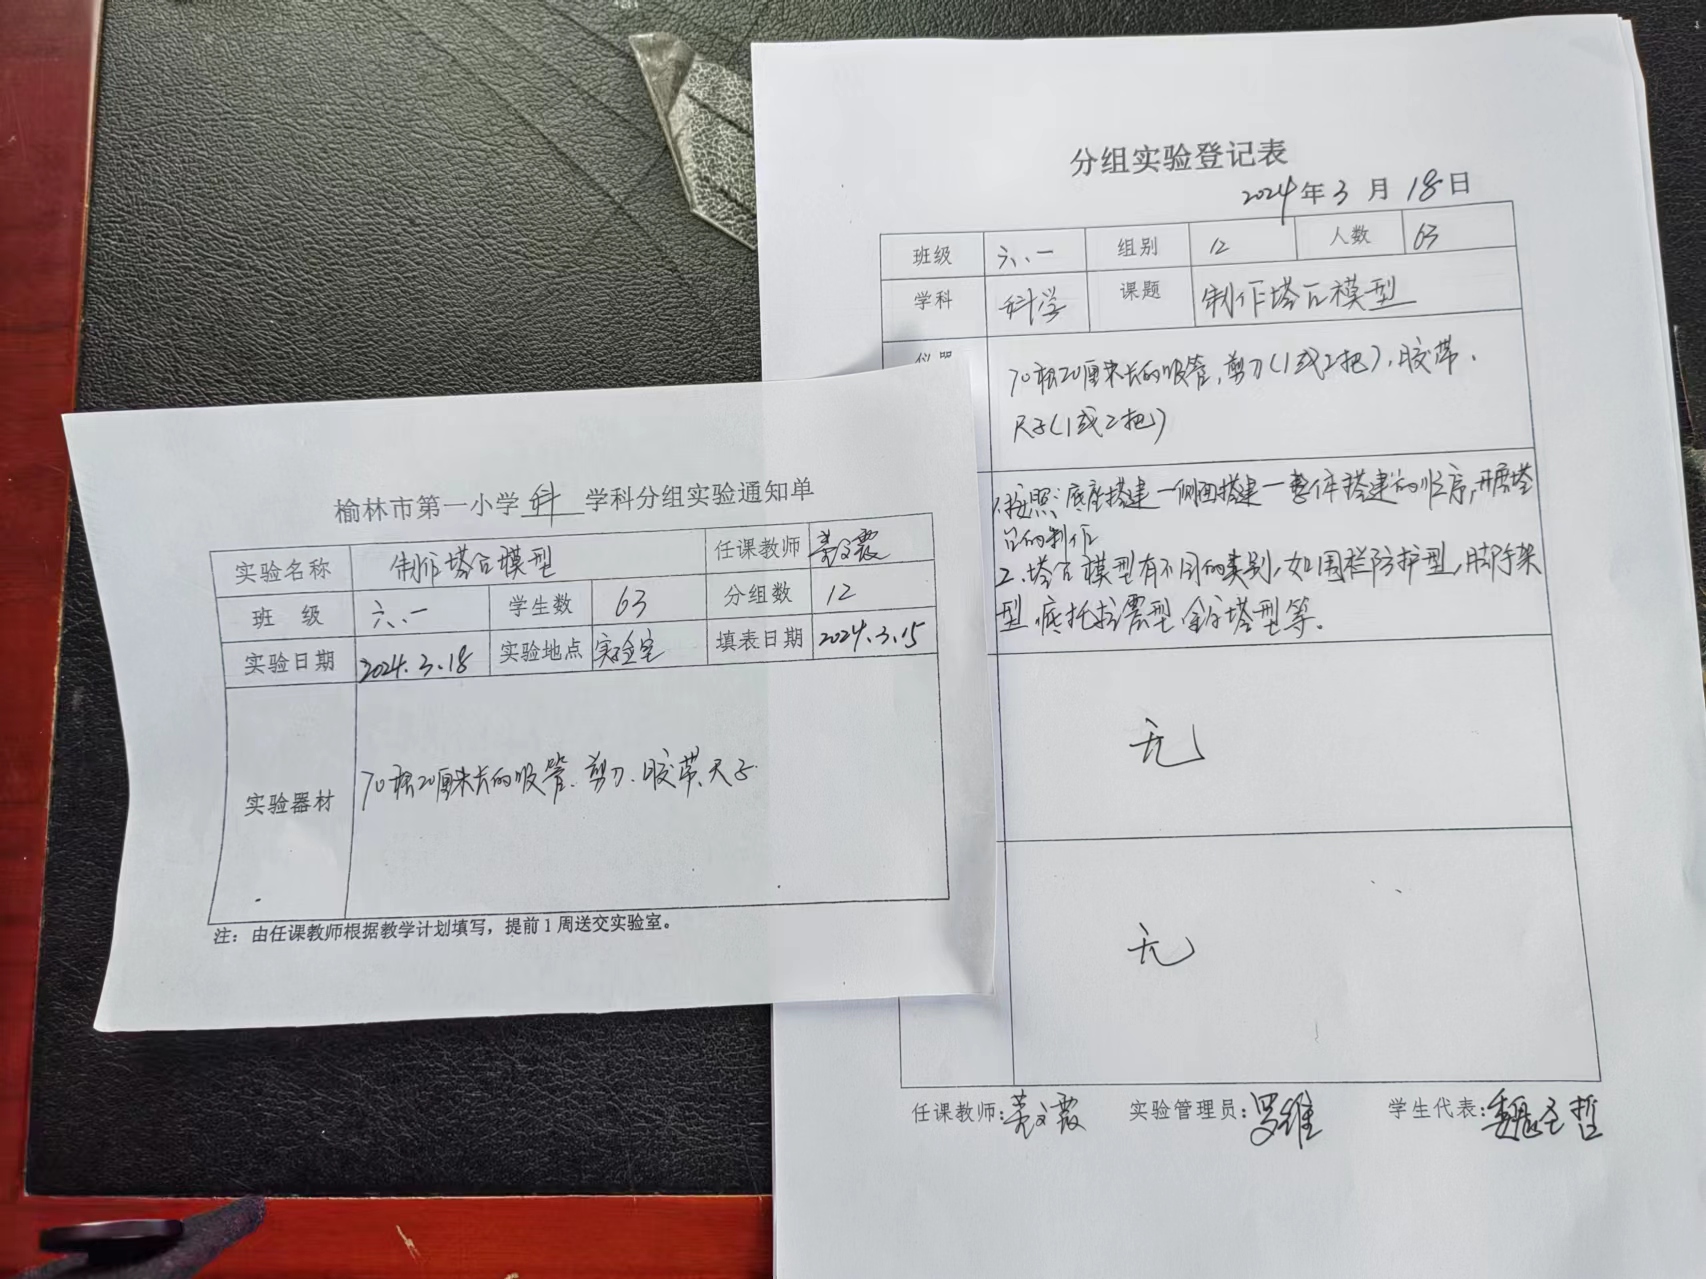 榆林市第一小学 科 学科分组实验通知单
实验名称 制作塔台模型 任课教师 姜文霞
班 级 六、一 学生数 63 分组数 12
实验日期 2024.3.18 实验地点 实验室 填表日期 2024.3.15
实验器材 70根20厘米长的吸管、剪刀、胶带、尺子
注：由任课教师根据教学计划填写，提前1周送交实验室。
分组实验登记表
2024年3月18日
班级 六、一 组别 12 人数 63
学科 科学 课题 制作塔台模型
仪器
70根20厘米长的吸管，剪刀(1或2把)，胶带，
尺子(1或2把)
1.按照：底座搭建—侧面搭建—整体搭建的顺序，开展塔
台的制作
2.塔台模型有不同的类别，如围栏防护型，脚手架
型，底托抗震型 金字塔型等。
无
无
任课教师：姜文霞 实验管理员：罗维 学生代表：魏圣哲